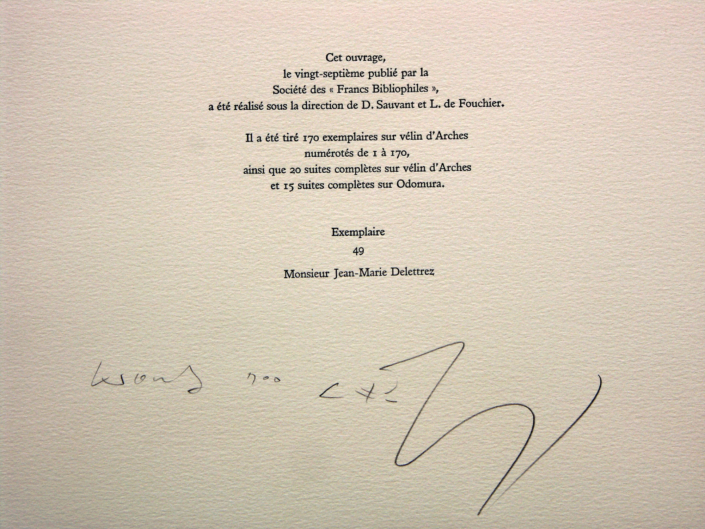 Cet ouvrage,
le vingt-septième publié par la
Société des « Francs Bibliophiles »,
a été réalisé sous la direction de D. Sauvant et L. de Fouchier.
Il a été tiré 170 exemplaires sur vélin d'Arches
numérotés de 1 à 170,
ainsi que 20 suites complètes sur vélin d'Arches
et 15 suites complètes sur Odomura.
Exemplaire
49
Monsieur Jean-Marie Delettrez